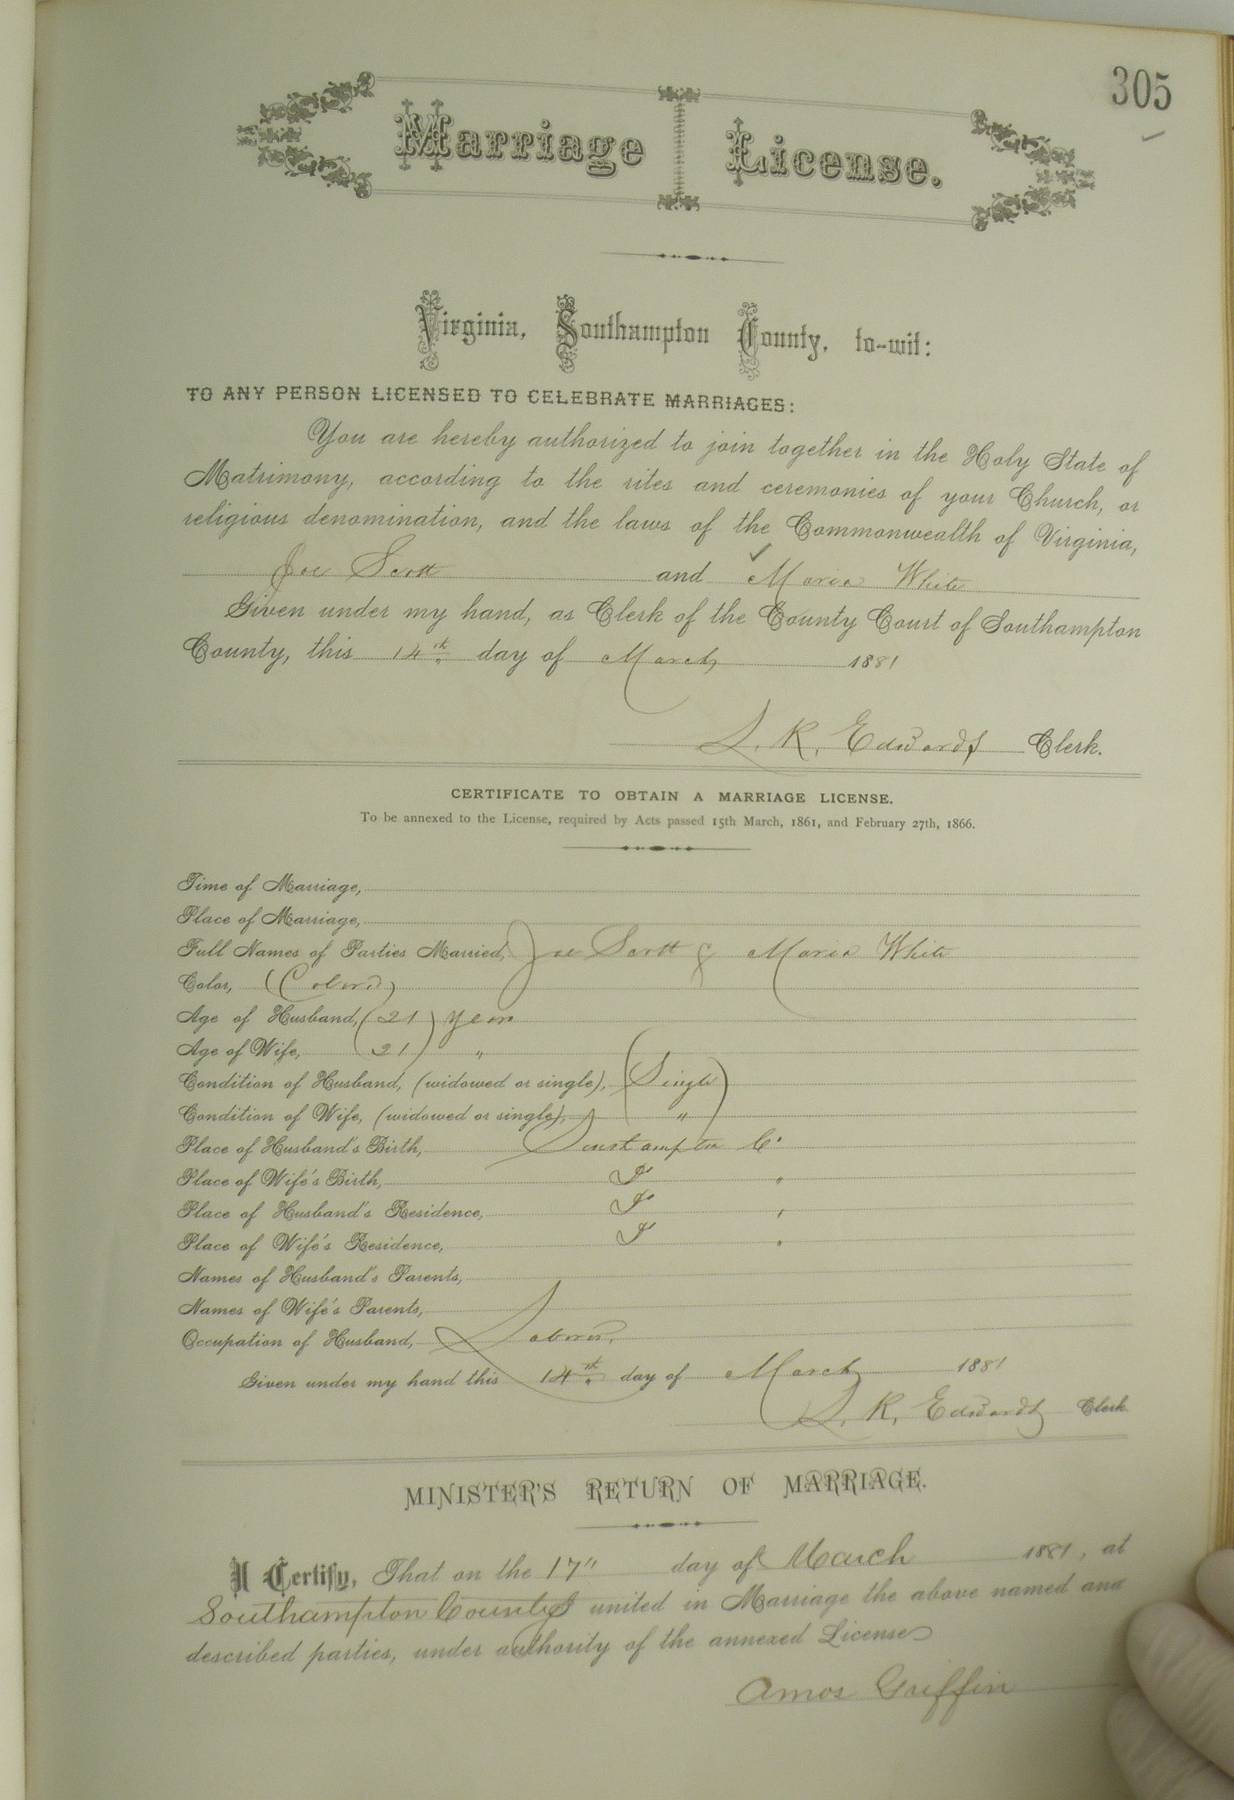 305
Marriage License.
Virginia, Southampton County, to-wit:
TO ANY PERSON LICENSED TO CELEBRATE MARRIAGES:
You are hereby authorized to join together in the Holy State of
Matrimony, according to the rites and ceremonies of your Church, or
religious denomination, and the laws of the Commonwealth of Virginia,
Joe Scott and Maria White
Given under my hand, as Clerk of the County Court of Southampton
County, this 14th day of March 1881
L. R. Edwards Clerk.
CERTIFICATE TO OBTAIN A MARRIAGE LICENSE.
To be annexed to the License, required by Acts passed 15th March, 1861, and February 27th, 1866.
Time of Marriage,
Place of Marriage,
Full Names of Parties Married, Joe Scott & Maria White
Color, (Colored)
Age of Husband, (21) years
Age of Wife, (21) "
Condition of Husband, (widowed or single), (Single)
Condition of Wife, (widowed or single), "
Place of Husband's Birth, Southampton Co
Place of Wife's Birth, Do "
Place of Husband's Residence, Do "
Place of Wife's Residence, Do "
Names of Husband's Parents,
Names of Wife's Parents,
Occupation of Husband, Laborer,
Given under my hand this 14th day of March 1881
L. R. Edwards Clerk
MINISTER'S RETURN OF MARRIAGE.
I Certify, That on the 17" day of March 1881, at
Southampton County I united in Marriage the above named and
described parties, under authority of the annexed License
Amos Griffin